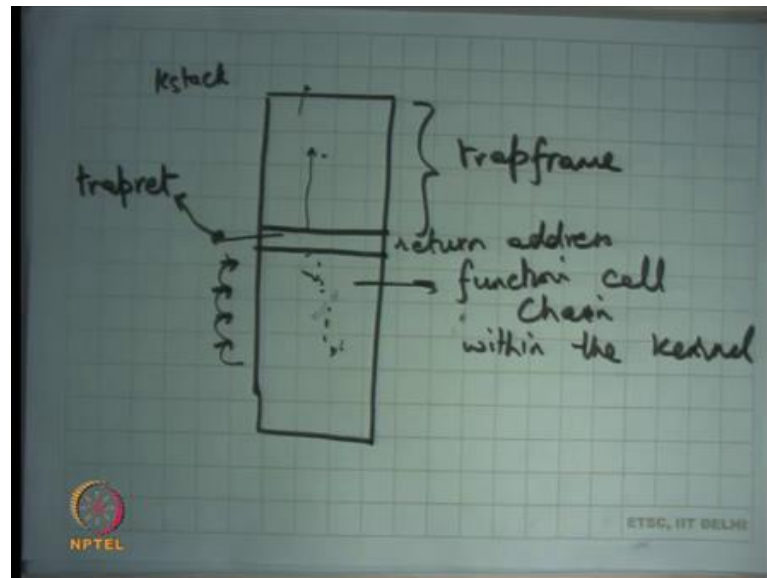 kstack
trapframe
trapret
return address
function call
chain
within the kernel
NPTEL
ETSC, IIT DELHI